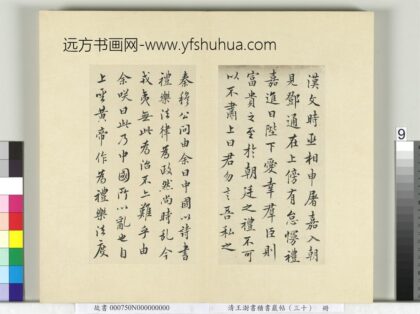 远方书画网-www.yfshuhua.com
漢文時丞相申屠嘉入朝
見鄧通在上傍有怠慢禮
嘉進曰陛下愛幸羣臣則
富貴之至於朝廷之禮不可
以不肅上曰君勿言吾私之
秦穆公問由余曰中國以詩書
禮樂法律為政然尚時亂今
戎夷無此為治不亦難乎由
余咲曰此乃中國所以亂也自
上聖黃帝作為禮樂法度
9
故書 000750N000000000
清王澍書積書巖帖（三十） 冊